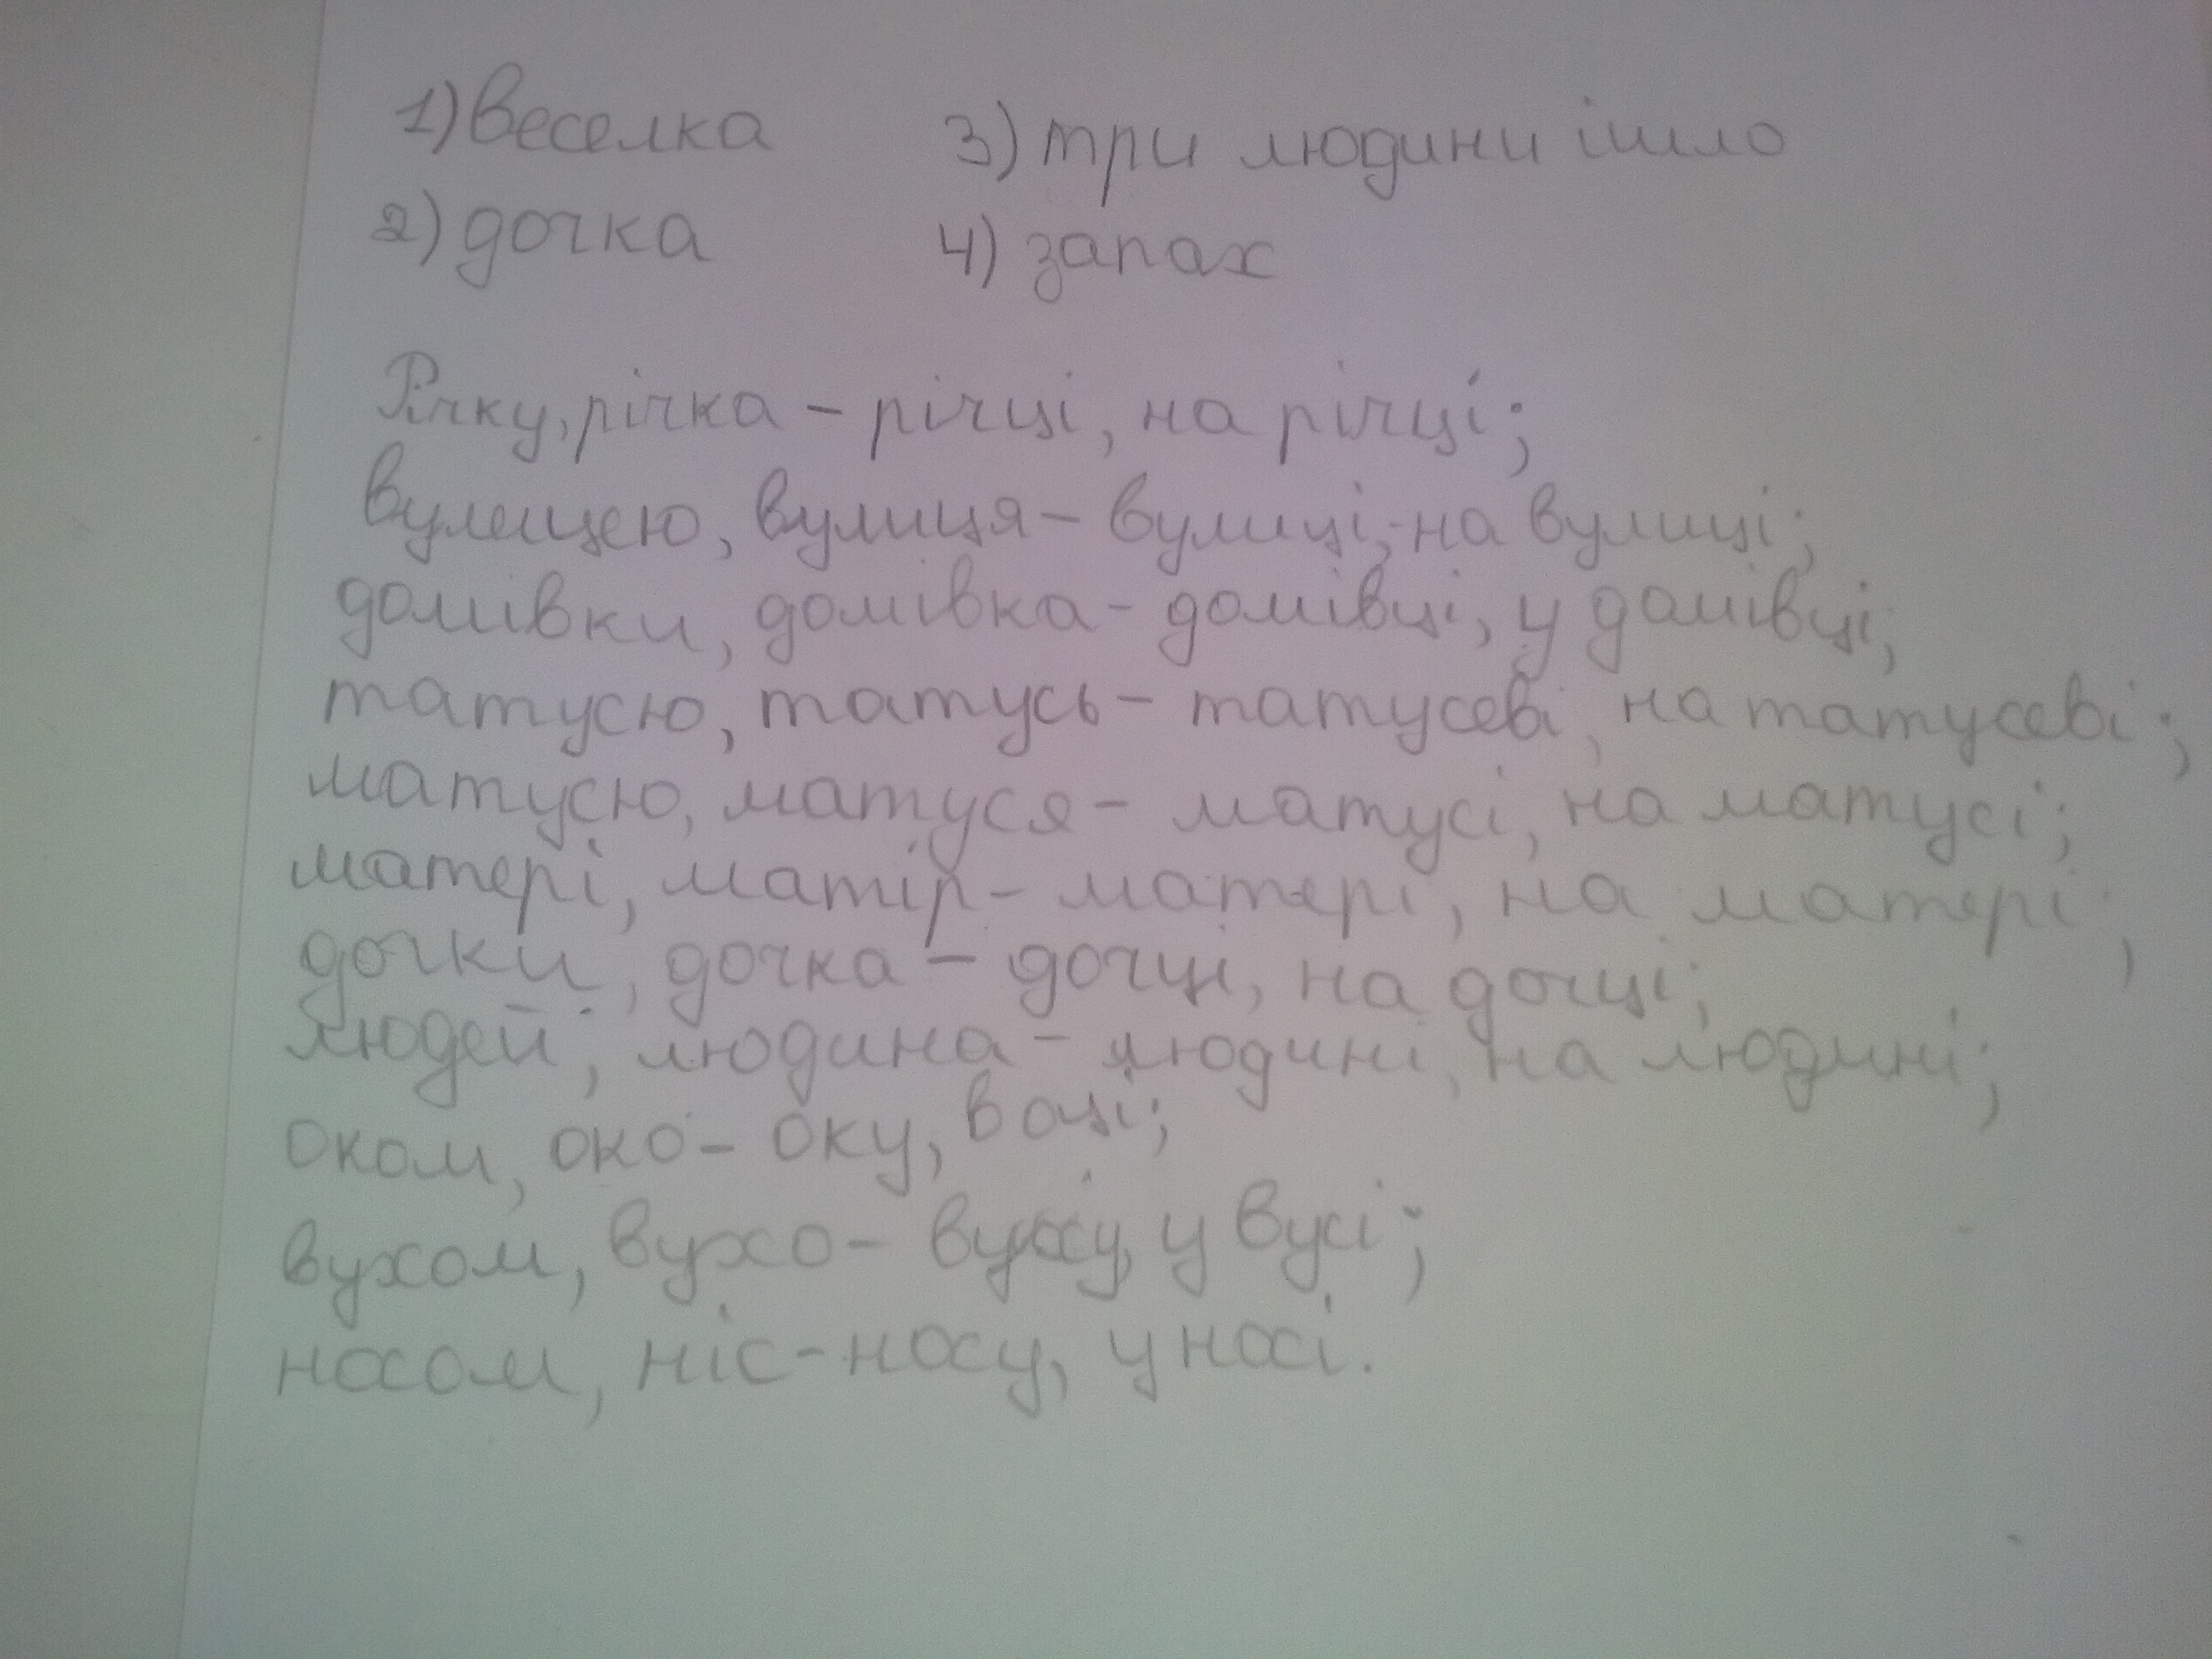 1) веселка 3) три людини ішло
2) дочка 4) запах
Річку, річка – річці, на річці;
вулицею, вулиця – вулиці, на вулиці;
домівки, домівка – домівці, у домівці;
татусю, татусь – татусеві, на татусеві;
матусю, матуся – матусі, на матусі;
матері, матір – матері, на матері;
дочки, дочка – дочці, на дочці;
людей, людина – людині, на людині;
оком, око – оку, в оці;
вухом, вухо – вуху, у вусі;
носом, ніс – носу, у носі.